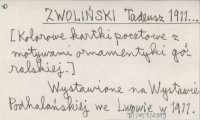 ZWOLIŃSKI Tadeusz 1911...
[Kolorowe kartki pocztowe z
motywami ornamentyki gó-
ralskiej.]
Wystawione na Wystawie
Podhalańskiej we Lwowie w 1911.